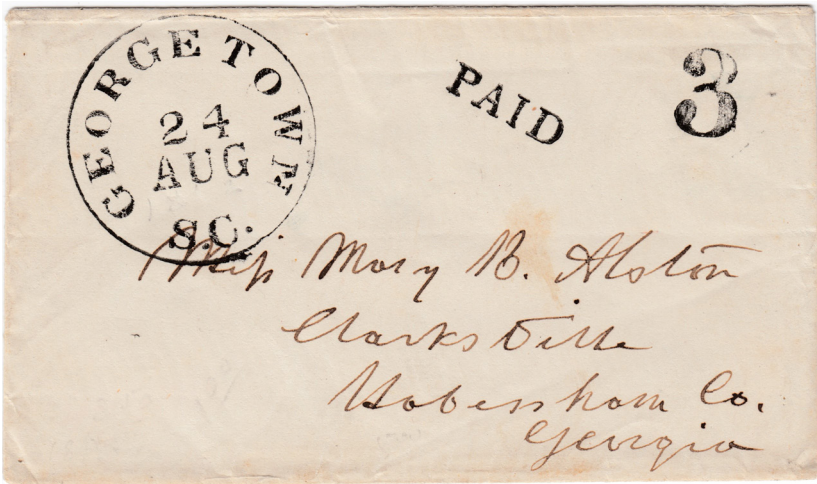 GEORGETOWN
24
AUG
S.C.
PAID
3
Miss Mary B. Alston
Clarksville
Habersham Co.
Georgia